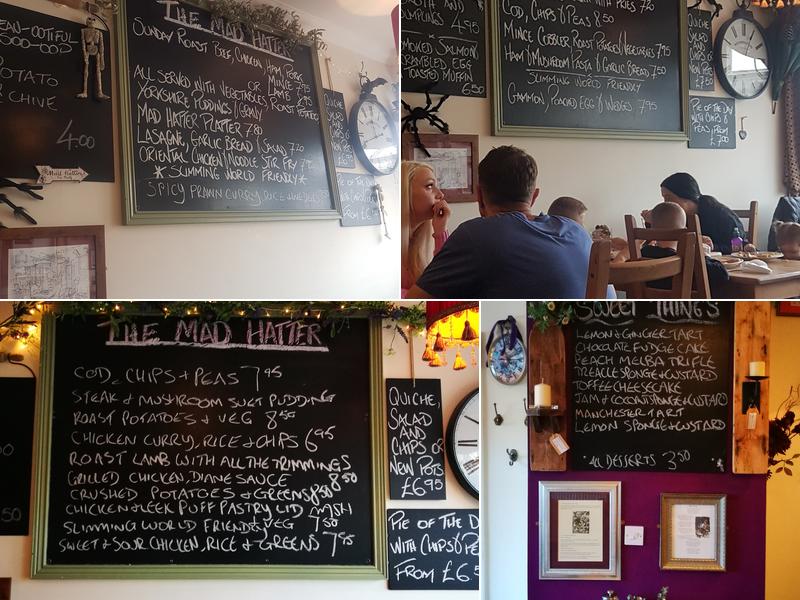 THE MAD HATTER
SUNDAY ROAST BEEF, CHICKEN, HAM, PORK
OR LAMB
ALL SERVED WITH VEGETABLES, ROAST POTATOES
YORKSHIRE PUDDINGS & GRAVY
MAD HATTER PLATTER 7.80
LASAGNE, GARLIC BREAD & SALAD 7.20
ORIENTAL CHICKEN NOODLE STIR FRY
*SLIMMING WORLD FRIENDLY*
SPICY PRAWN CURRY, RICE
POTATO
CHIVE
4.00
QUICHE
SALAD
AND
CHIPS
4.95
SMOKED SALMON
SCRAMBLED EGG
TOASTED MUFFIN
6.50
COD, CHIPS & PEAS 8.50
MINCE COBBLER ROAST POTATOES & VEGETABLES 7.95
HAM & MUSHROOM PASTA & GARLIC BREAD 7.50
SLIMMING WORLD FRIENDLY
GAMMON, POACHED EGG & WEDGES 7.95
QUICHE
SALAD
AND
CHIPS OR
PIE OF THE DAY
WITH CHIPS &
PEAS FROM
£7.00
THE MAD HATTER
COD, CHIPS + PEAS 7.95
STEAK & MUSHROOM SUET PUDDING
ROAST POTATOES & VEG 8.50
CHICKEN CURRY, RICE & CHIPS 6.95
ROAST LAMB WITH ALL THE TRIMMINGS
8.50
GRILLED CHICKEN, DIANE SAUCE
CRUSHED POTATOES & GREENS 8.50
CHICKEN & LEEK PUFF PASTRY LID MASH
SLIMMING WORLD FRIENDLY VEG 7.50
SWEET & SOUR CHICKEN, RICE & GREENS 7.95
QUICHE,
SALAD
AND
CHIPS OR
NEW POTS
£6.95
PIE OF THE D
WITH CHIPS & PE
FROM £6.5
50
SWEET THINGS
LEMON & GINGER TART
CHOCOLATE FUDGE CAKE
PEACH MELBA TRIFLE
TREACLE SPONGE & CUSTARD
TOFFEE CHEESECAKE
JAM & COCONUT SPONGE & CUSTARD
MANCHESTER TART
LEMON SPONGE & CUSTARD
*ALL DESSERTS 3.50*